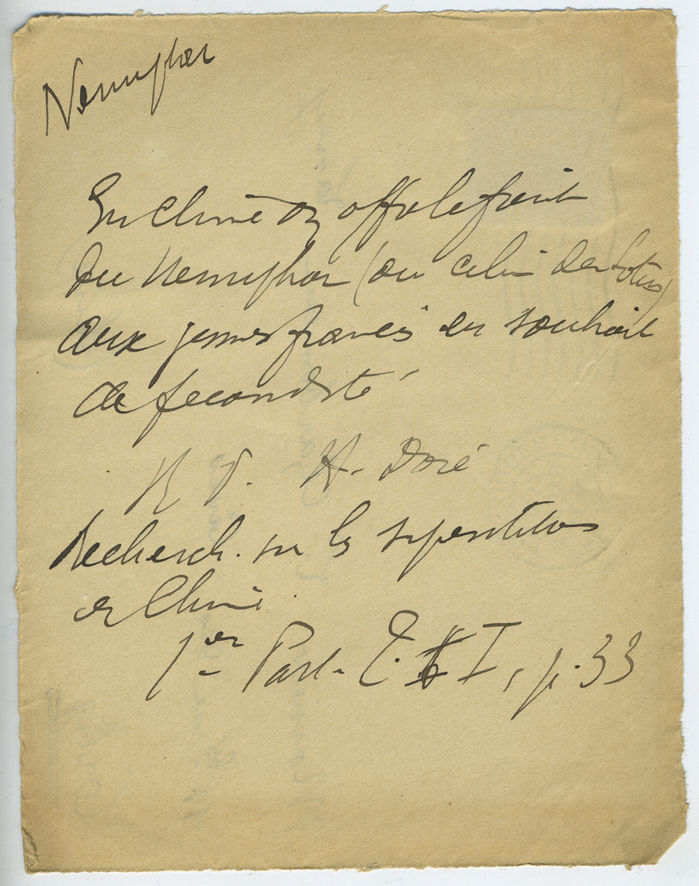 Nenuphar
En Chine on offre le fruit
du Nenuphar (ou celui du Lotus)
aux jeunes fiancés en souhait
de fecondité
R. P. H. Doré
Recherch. sur les superstitions
en Chine.
1er Part. T. I, p. 33